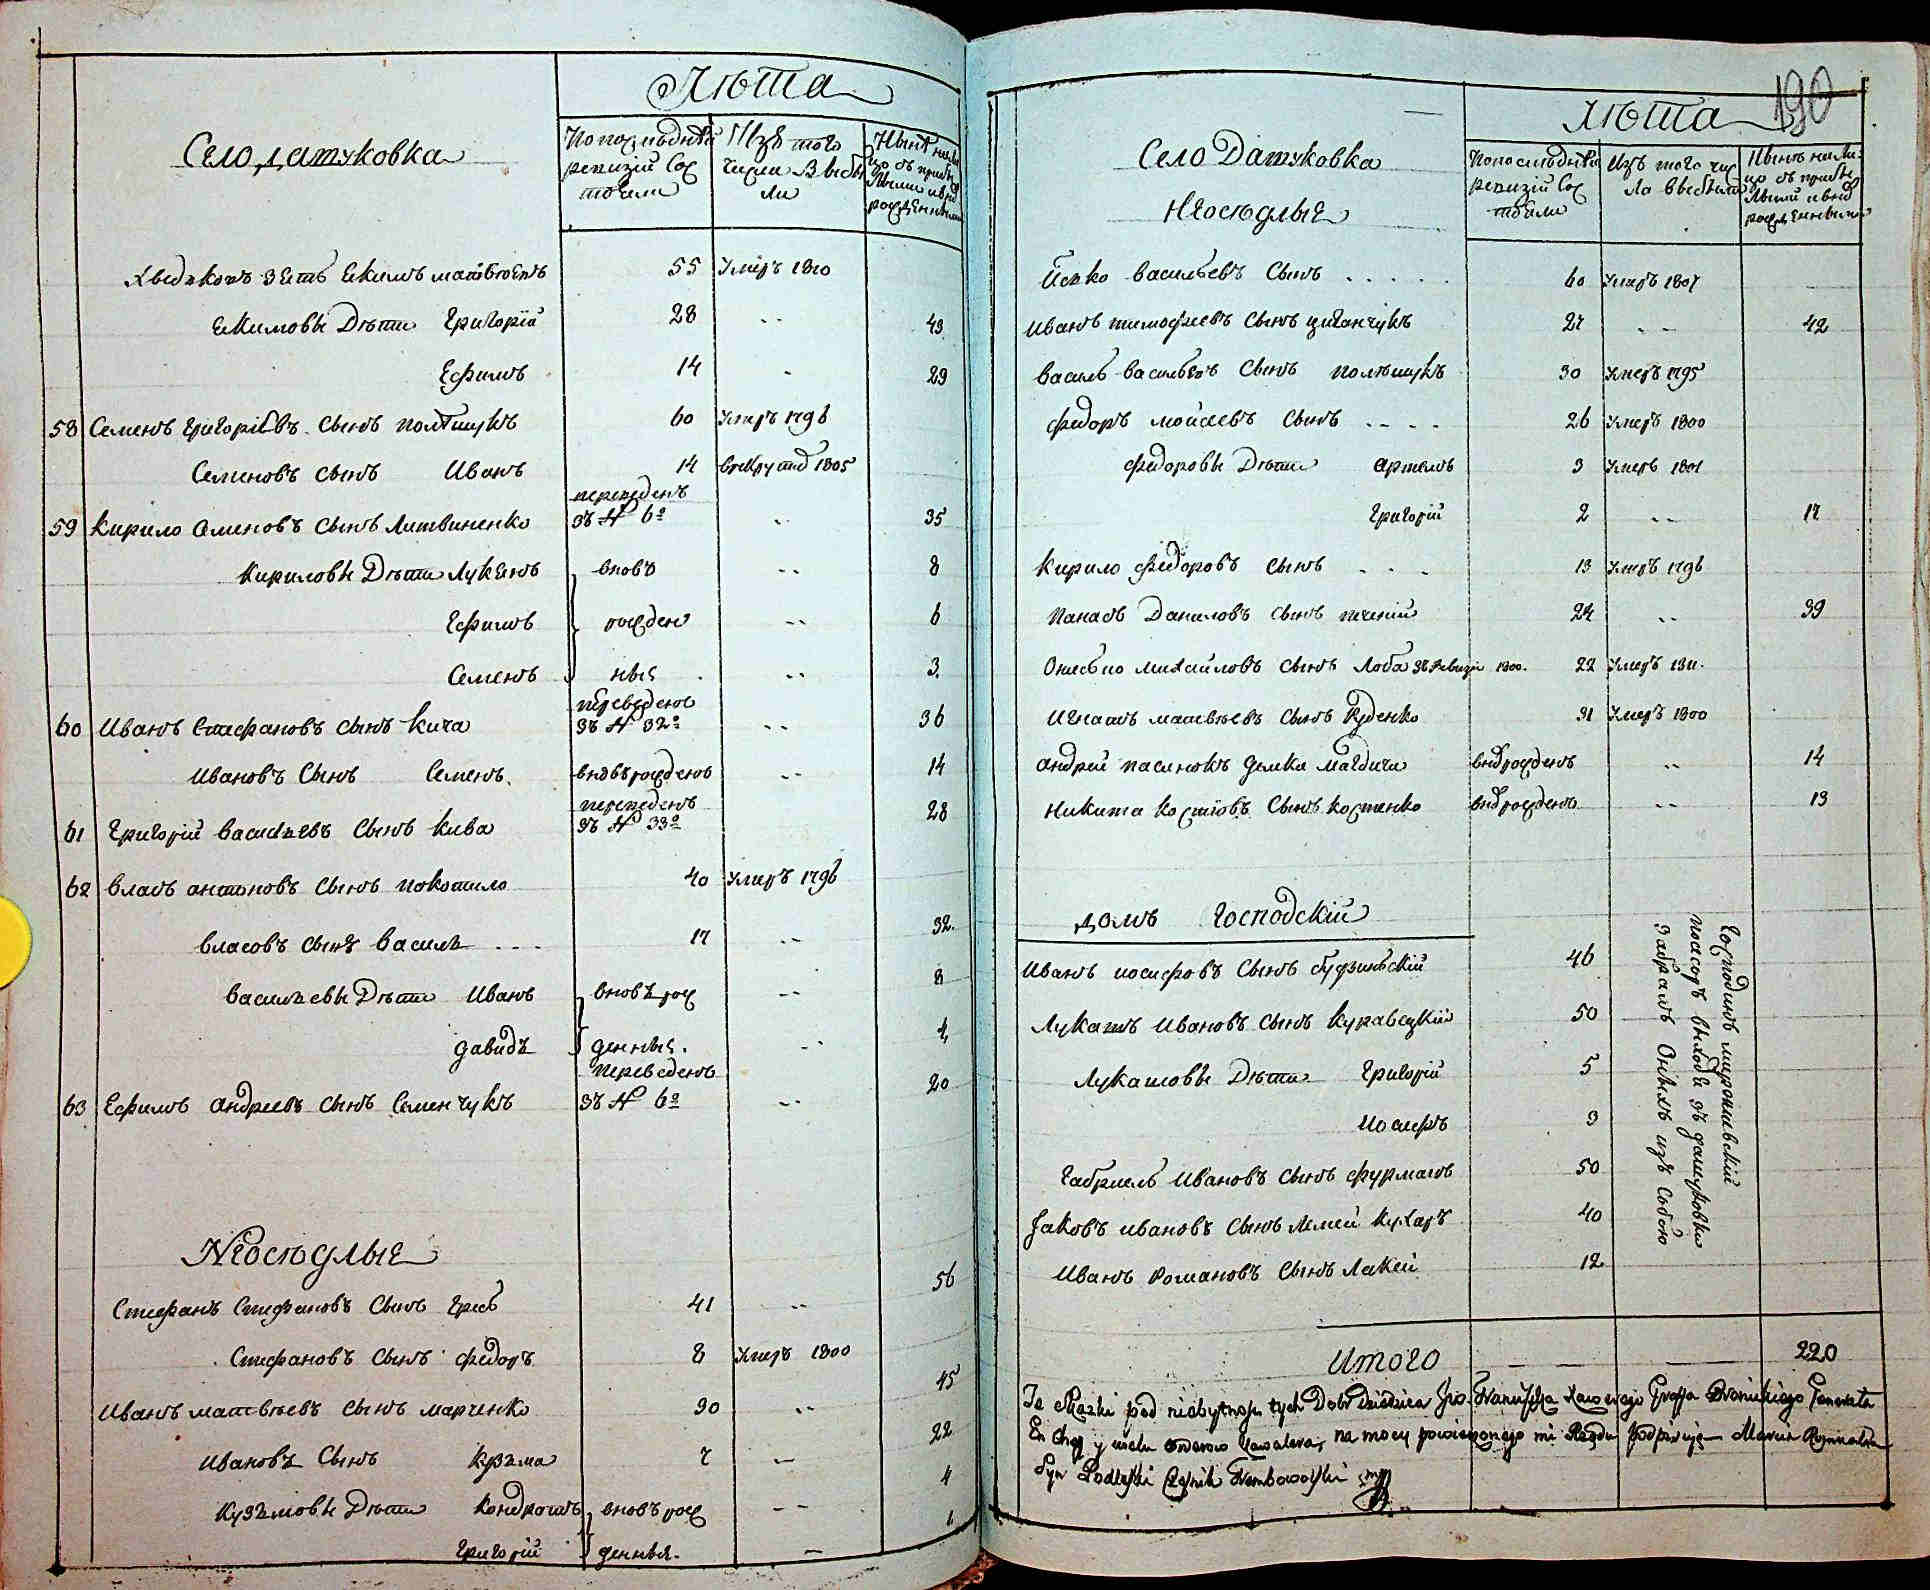 Село Дашуковка
Лѣта
По последней ревизіи Состояли
Изъ того числа Выбыли
Нынѣ налицо съ прибылыми и вновь рожденными
Хведиковъ зять Екимъ матвѣевъ 55 Умеръ 1810
Екимовы Дѣти Григорій 28 -- 43
Ефимъ 14 - 29
58 Семенъ Григоріевъ Сынъ полѣщукъ 60 Умеръ 1796
Семеновъ сынъ Иванъ 14 врекруты 1805
59 Кирило Семеновъ Сынъ Литвиненко переведенъ зъ № 6º -- 35
Кириловы Дѣти Лукянъ вновь -- 8
Ефимъ рожден -- 6
Семенъ ныя -- 3
60 Иванъ Стефановъ сынъ Кича переведенъ зъ № 32º -- 36
Ивановъ Сынъ Семенъ вновьрожденъ -- 14
61 Григорій Васильевъ Сынъ Кива переведенъ зъ № 33º 28
62 Власъ антоновъ Сынъ покотило 40 Умеръ 1796
Власовъ Сынъ Василь ---- 17 -- 32
Васильевы Дѣти Иванъ вновь рож -- 8
Давидъ денныя. -- 4
63 Ефимъ Андреевъ Сынъ Семенчукъ переведенъ зъ № 6º -- 20
Неосѣдлые
Стефанъ Стефановъ Сынъ 41 -- 56
Стефановъ Сынъ Федоръ 8 Умеръ 1800
Иванъ матвѣевъ Сынъ марченко 30 -- 45
Ивановъ Сынъ Кузьма 7 -- 22
Кузьмовы Дѣти Кондратъ вновь рож -- 4
Григорій денныя. - 1
190
Село Дашуковка
Неосѣдлые
Лѣта
По последней ревизіи Состояли
Изъ того числа выбыли
Нынѣ налицо съ прибылыми и вновь рожденными
Васильевъ Сынъ ..... 60 Умеръ 1807
Иванъ тимофеевъ Сынъ циганчукъ 27 -- 42
Василь Васильевъ Сынъ полѣщукъ 30 Умеръ 1795
Федоръ мойсеевъ Сынъ .... 26 Умеръ 1800
Федоровы Дѣти Артемъ 3 Умеръ 1801
Григорій 2 -- 17
Кирило Федоровъ Сынъ .... 13 Умеръ 1796
Панасъ Даниловъ Сынъ 24 -- 39
Михайловъ Сынъ Лоба зъ Ревизіи 1800. 22 Умеръ 1811.
Игнатъ матвѣевъ Сынъ Руденко 31 Умеръ 1800
Андрей пасинокъ вновьрожденъ -- 14
Никита Костювъ Сынъ костенко вновьрожденъ -- 13
Домъ Господскій
Иванъ иосифовъ Сынъ 46
Лукашъ Ивановъ Сынъ 50
Лукашовы Дѣти Григорій 5
Иосифъ 3
Габріель Ивановъ Сынъ фурманъ 50
Яковъ Ивановъ Сынъ Кухаръ 40
Иванъ Романовъ Сынъ Лакей 12
Господинъ
посесоръ зъ дашуковки
забралъ Оныхъ изъ Собою
Итого 220
Te Skazki pod niebytność tych Dobr Dziedzica Franciszka Xawerego Graffa Branickiego Generała
En Chef y wielu Orderow Kawalera, na mocy powierzonego mi Rządu podpisuję Marcin
Syn Podleski Cześnik Trembowolski